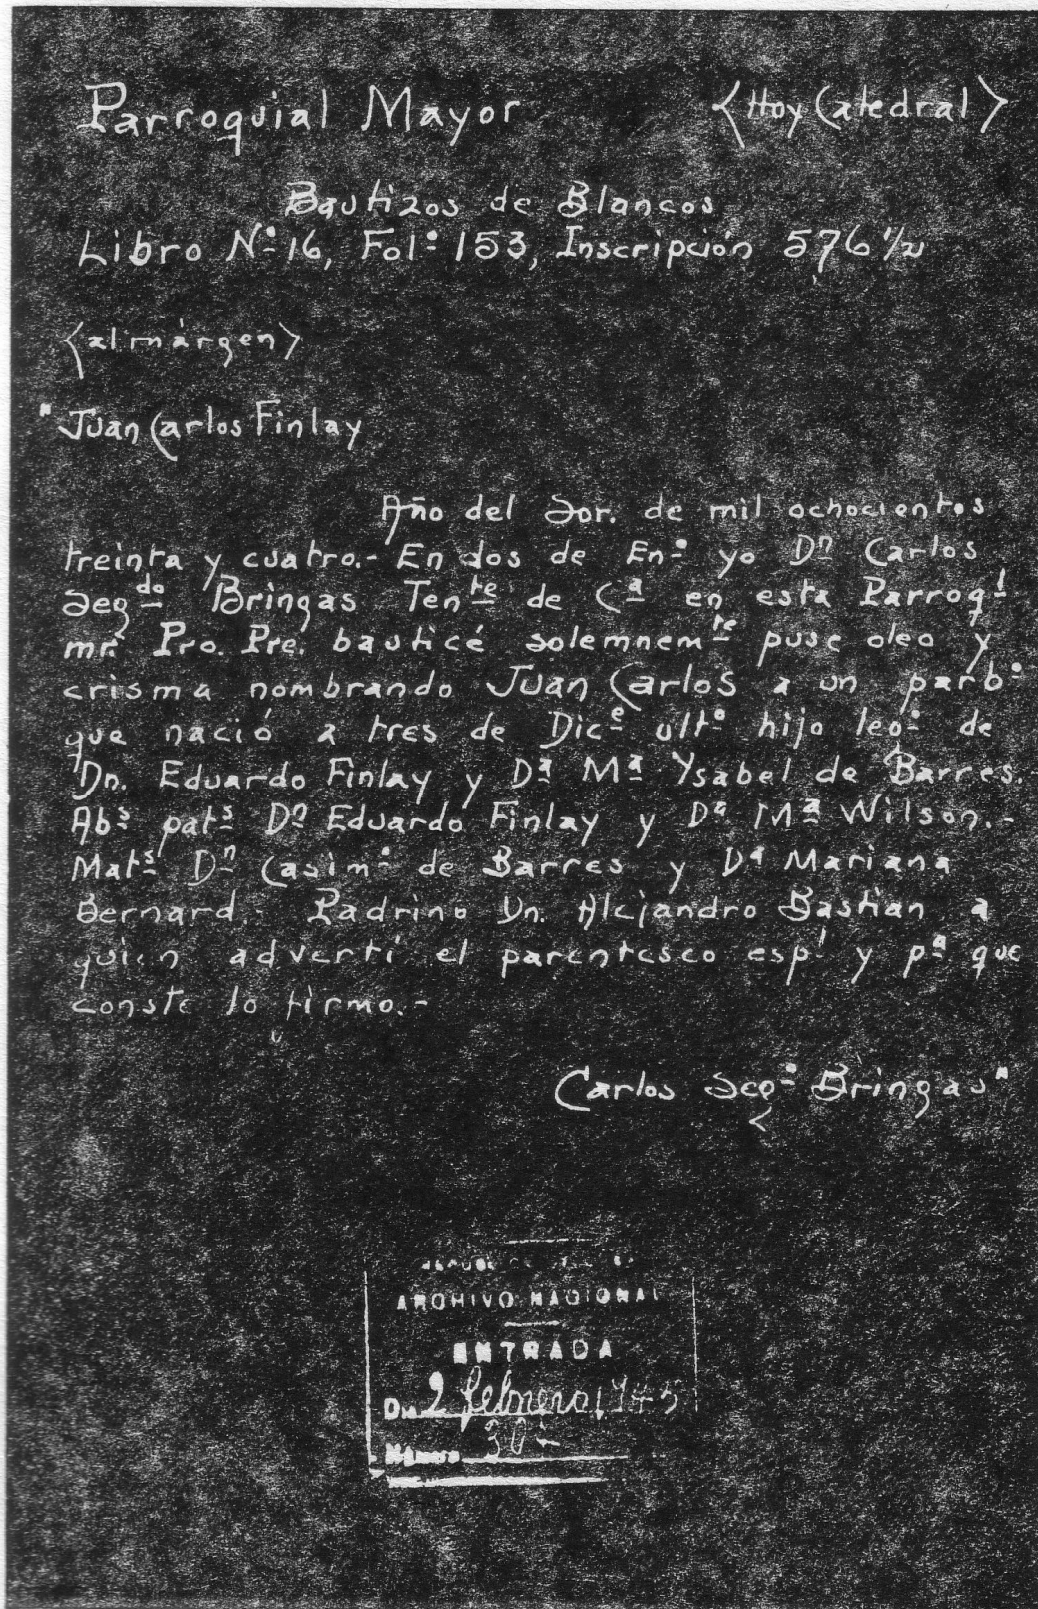 Parroquial Mayor <Hoy Catedral>
Bautizos de Blancos
Libro Nº 16, Folº 153, Inscripción 576 1/2
<al márgen>
"Juan Carlos Finlay
Año del Sor. de mil ochocientos
treinta y cuatro.- En dos de Enº yo Dn Carlos
Segdo Bringas Tente de Ca en esta Parroql
mr. Pro. Pre. bauticé solemnemte puse oleo y
crisma nombrando Juan Carlos a un parbº
que nació a tres de Dice ultº hijo legº de
Dn. Eduardo Finlay y Dª Mª Ysabel de Barres.
Abs pats Dn Eduardo Finlay y Dª Mª Wilson.-
Mats Dn Casimº de Barres y Dª Mariana
Bernard.- Padrino Dn. Alejandro Bastian a
quien advertí el parentesco espl y pª que
conste lo firmo.-
Carlos Segº Bringas"
ARCHIVO NACIONAL
ENTRADA
Dia 2 febrero 1945
Número